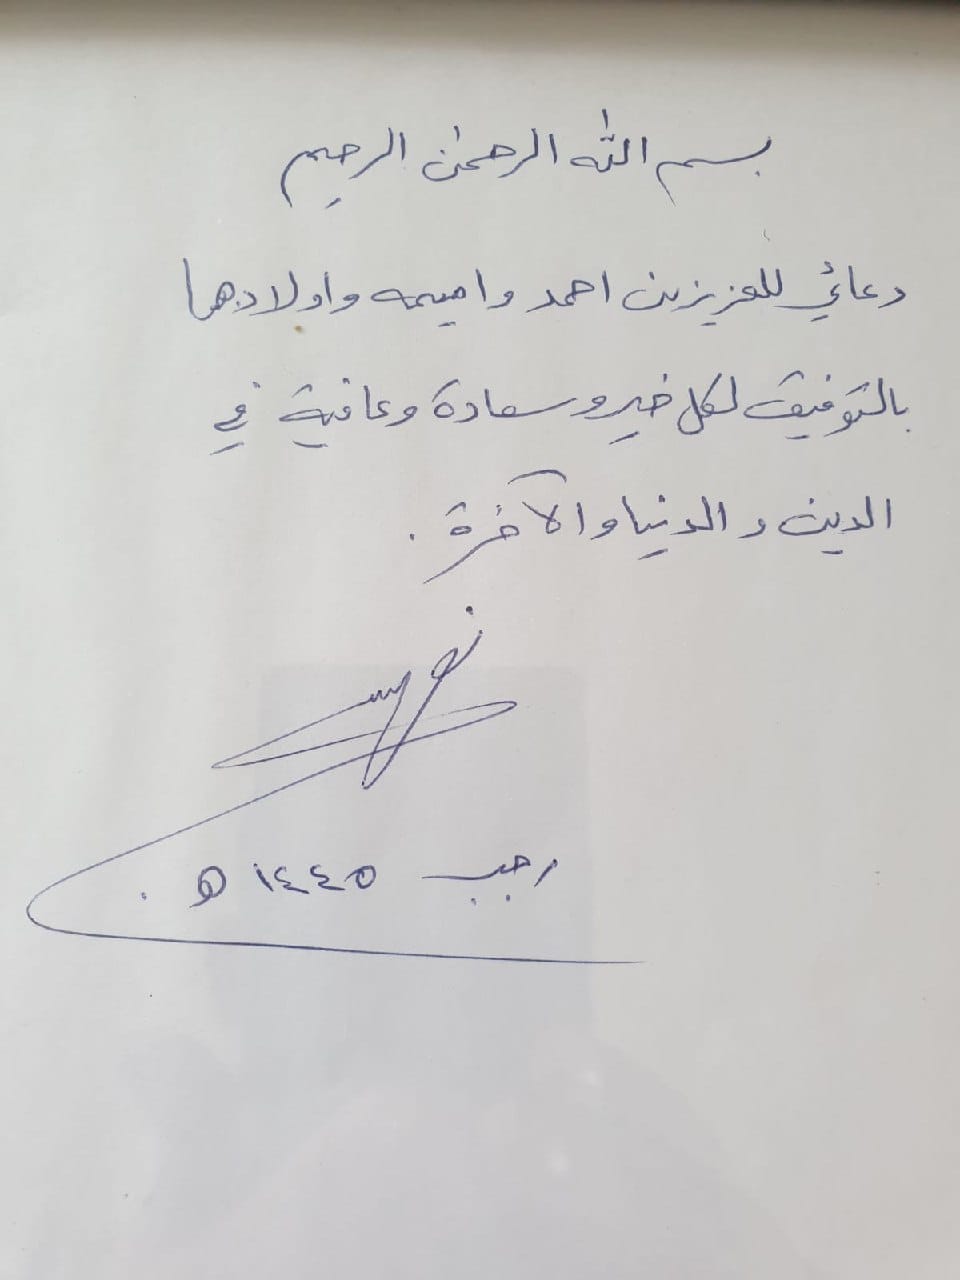 بسم الله الرحمن الرحيم
دعائي للعزيزين احمد واميمه واولادهما
بالتوفيق لكل خير وسعادة وعافية في
الدين والدنيا والآخرة .
رجب ١٤٤٥ هـ .